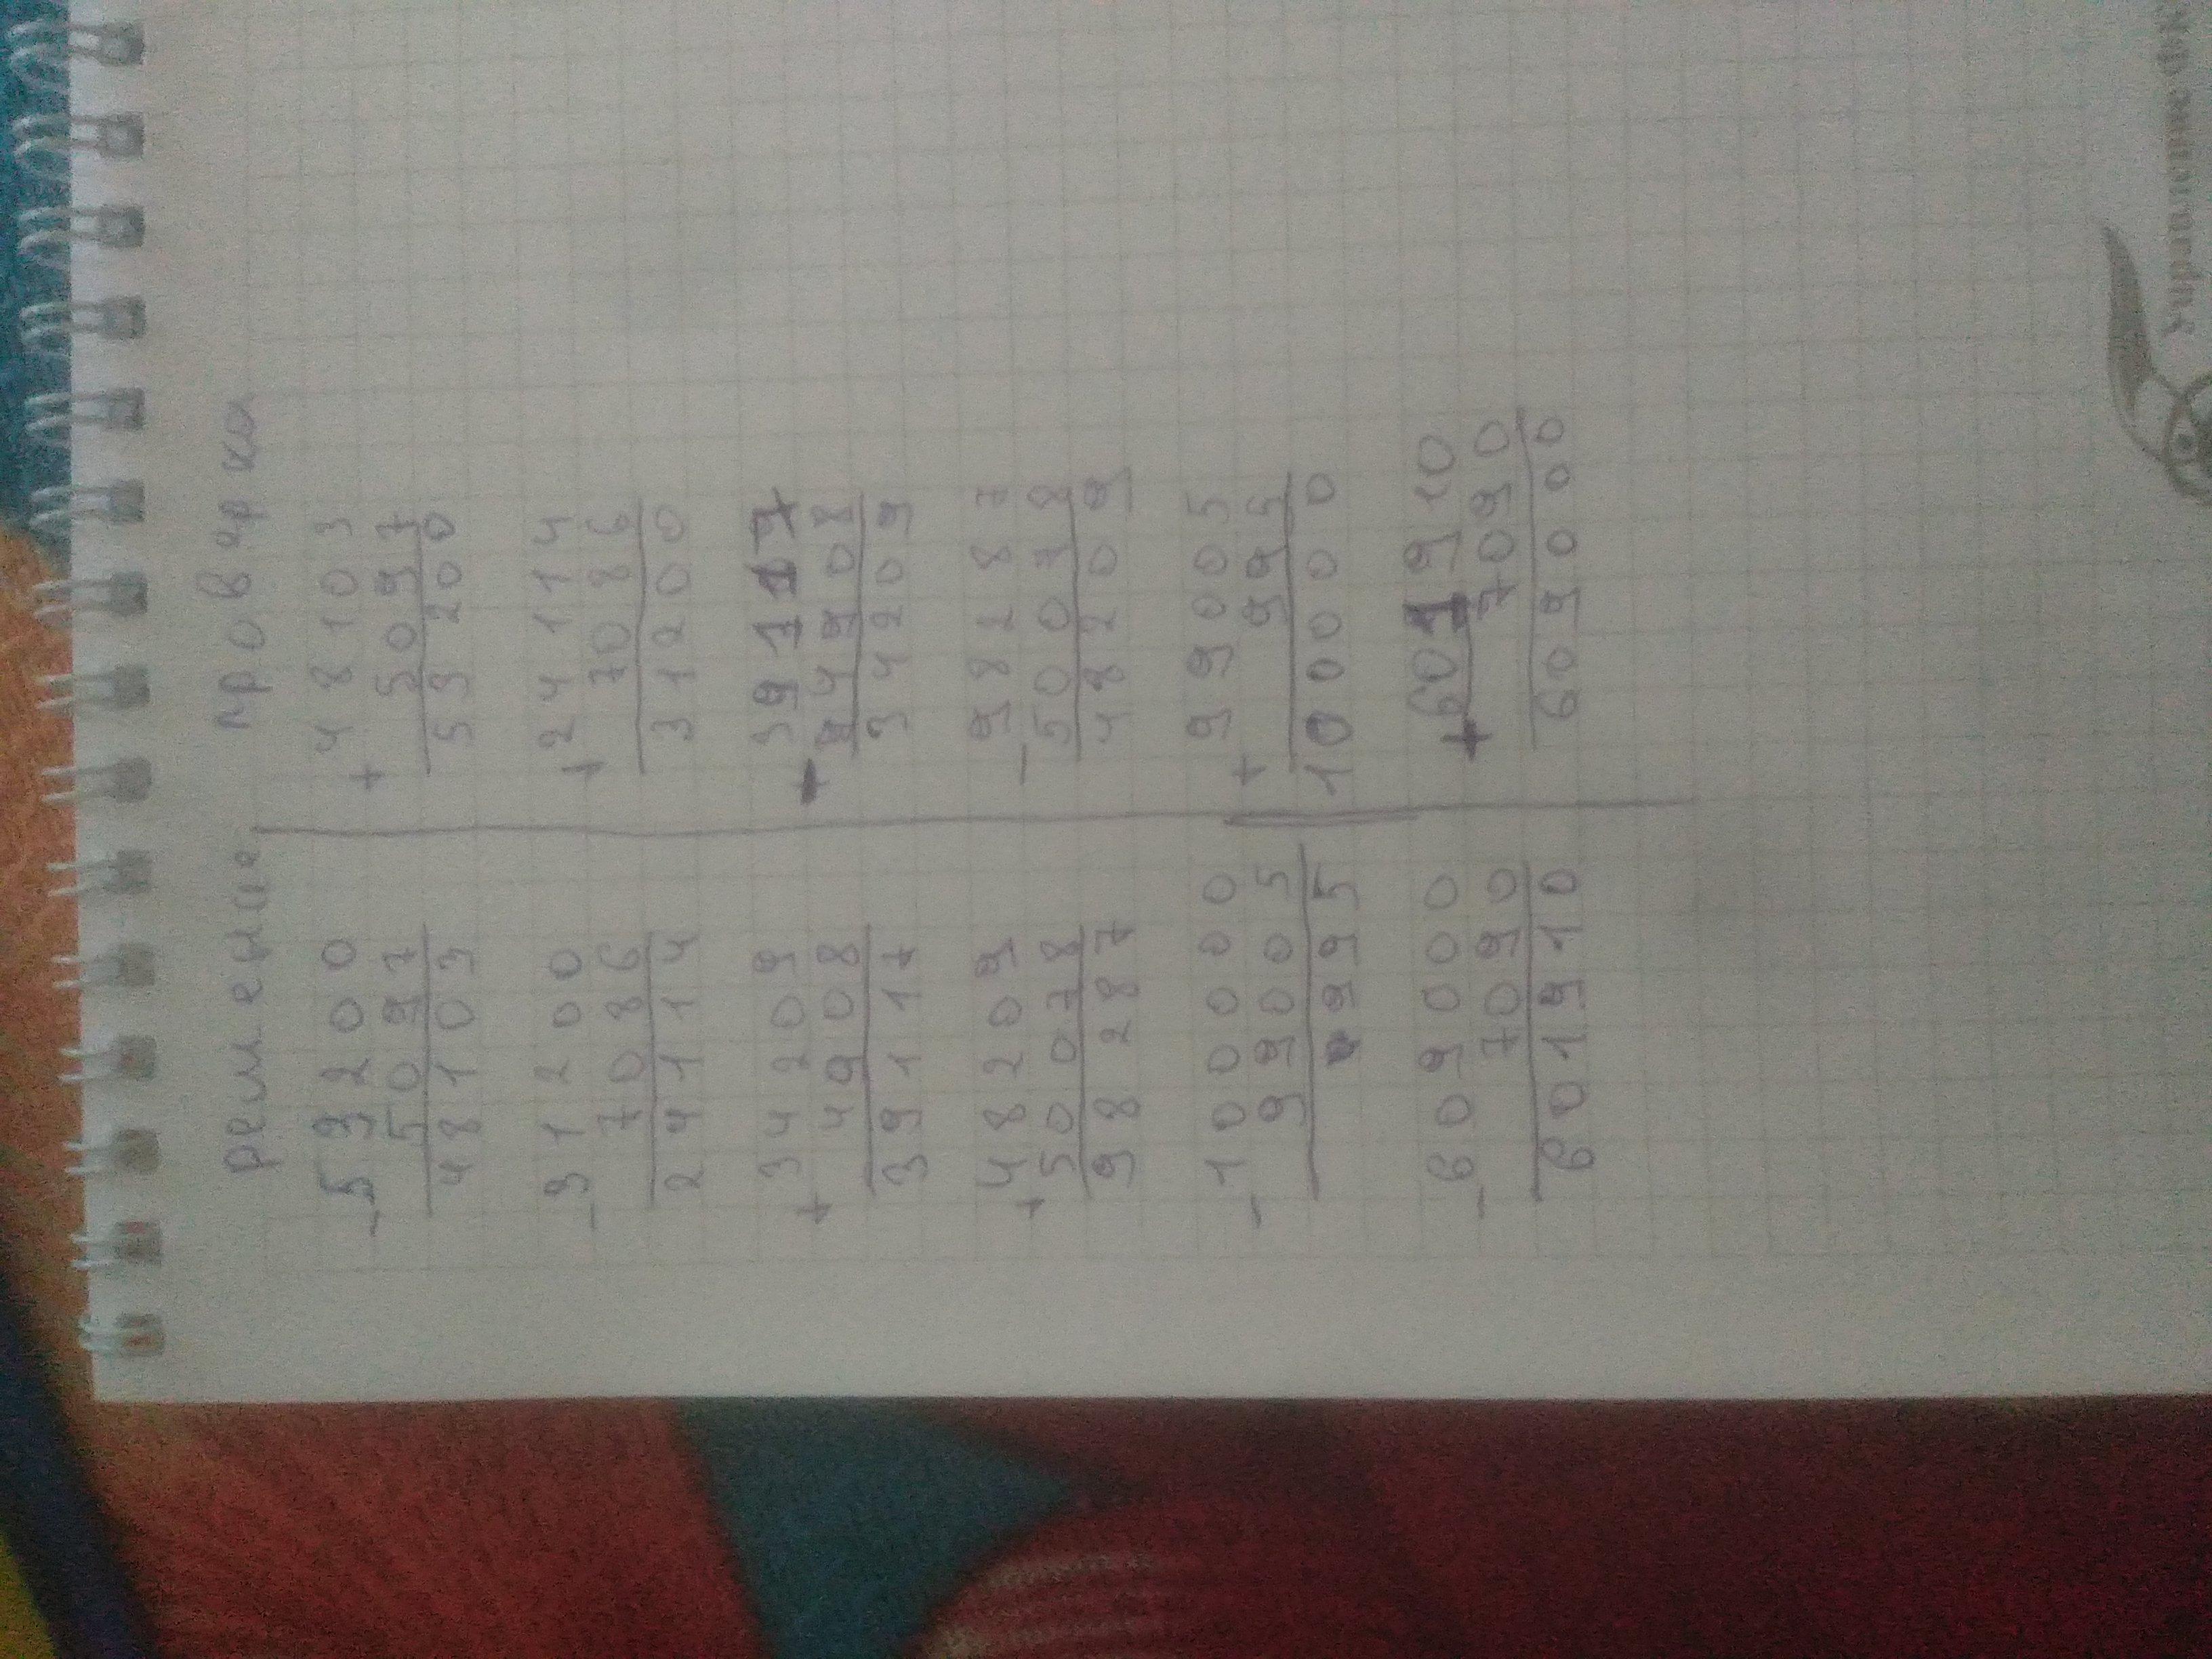 решение проверка
53200 48103
- +
5097 5097
48103 53200
31200 24114
- +
7086 7086
24114 31200
34209 39117
+ -
4908 4908
39117 34209
48209 98287
+ -
50078 50078
98287 48209
100000 99005
- +
99005 995
995 100000
609000 601910
- +
7090 7090
601910 609000